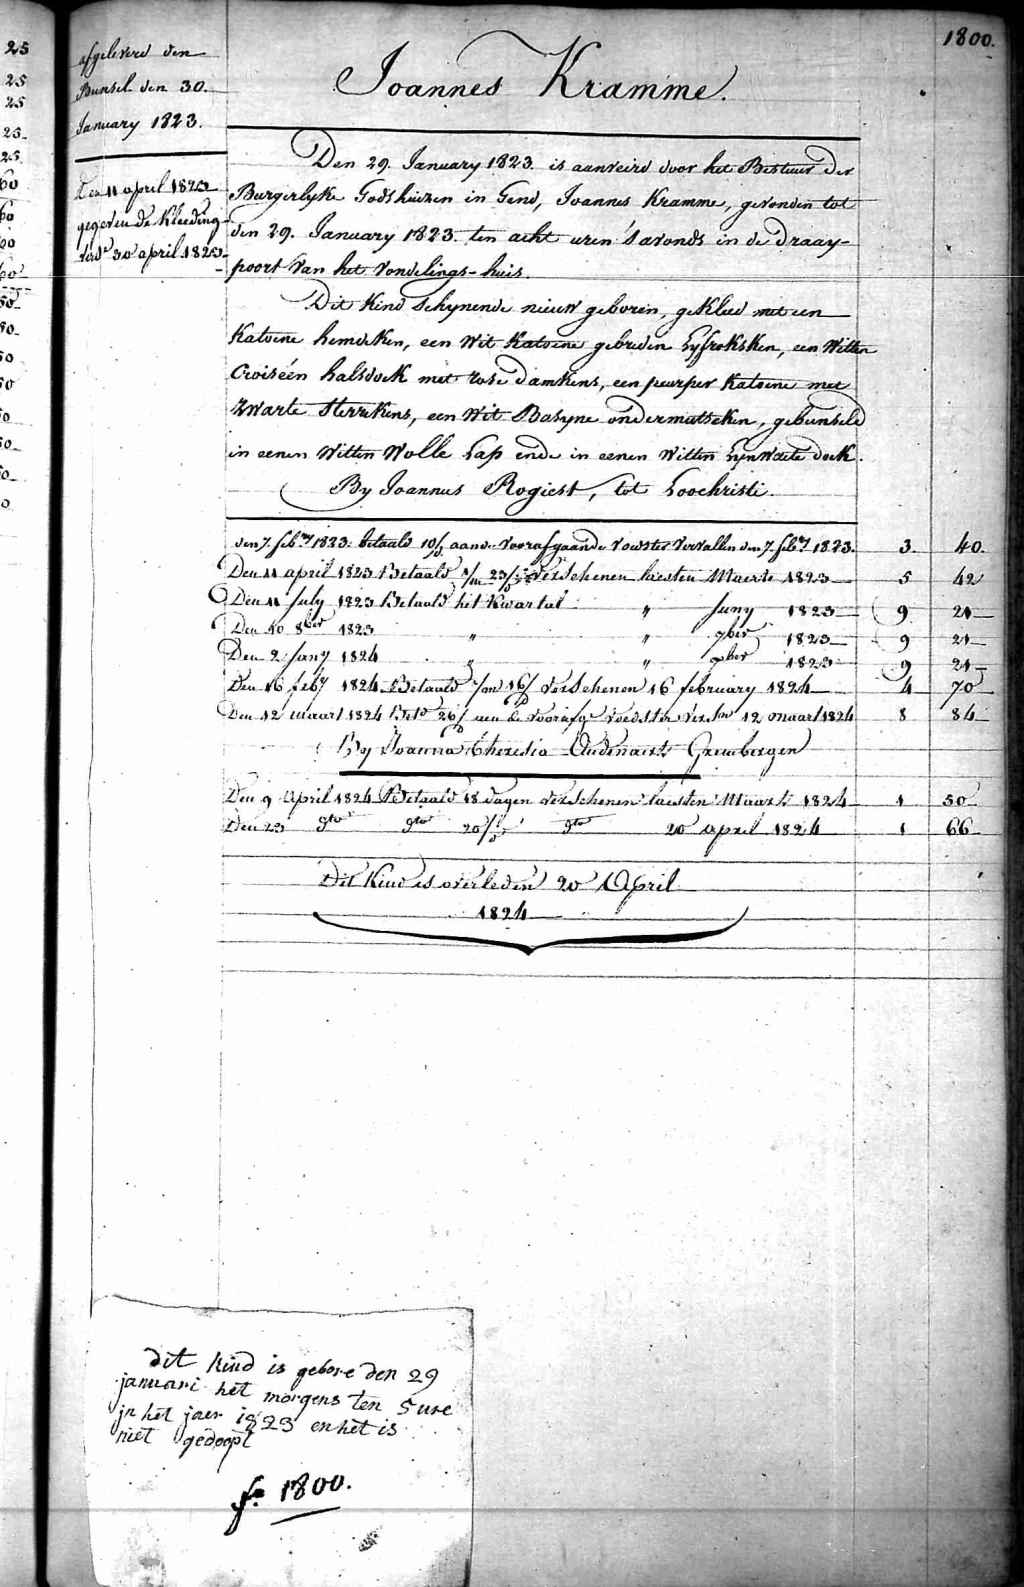 1800.
25
25
25
25
25
60
60
60
60
50
50
50
50
50
50
50
afgeleverd den
Bunsel den 30.
January 1823.
Den 11 april 1823
gegeven de Kleeding
30 april 1823
Joannes Kramme.
Den 29. January 1823. is aanveird door het Bestuur der
Burgerlyke Godshuizen in Gend, Joannes Kramme, gevonden tot
den 29. January 1823. ten acht uren 's avonds in de draay-
poort van het vondelings-huis.
Dit Kind schynende nieuw geboren, gekleed met een
Katoene hemdeken, een wit Katoene gebreden Lyfrokske​n, een witten
Croiséén halsdoek met rose damkens, een peurper Katoene met
zwarte sterrekens, een wit Basyne ondermutseken, gebunseld
in eenen witten Wolle Lap ende in eenen witten Lynwaete doek.
By Joannus Rogiest, tot Loochristi.
den 7. feb.ry 1823. betaald 10/ aan de voorafgaande voester vervallen den 7. feb.ry 1823. 3. 40.
Den 11 april 1823 Betaald 1/m 23/ verschenen laesten Maerte 1823 5 42
Den 11 July 1823 Betaald het Kwartal " Juny 1823 9 21
Den 10 8ber 1823 " " 7ber 1823 9 21
Den 2 Jany 1824 " " 1823 9 21
Den 16 feby 1824 Betaald 1/m 16/ verschenen 16 february 1824 4 70
Den 12 maart 1824 Betd 26/ aen de voorafge voedster 12 maart 1824 8 84
By Joanna Theresia Audenaert Grembergen
Den 9 April 1824 Betaald 18 dagen verschenen laesten Maart 1824 1 50
Den 23 dto dto 20/ dto 20 april 1824 1 66
Dit Kind is overleden 20 April
1824
dit kind is gebore den 29
januari het morgens ten 5 ure
jn het jaer 1823 en het is
niet gedoopt
fo 1800.